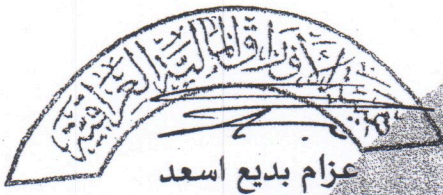 الأوراق المالية العراقية
عزام بديع اسعد